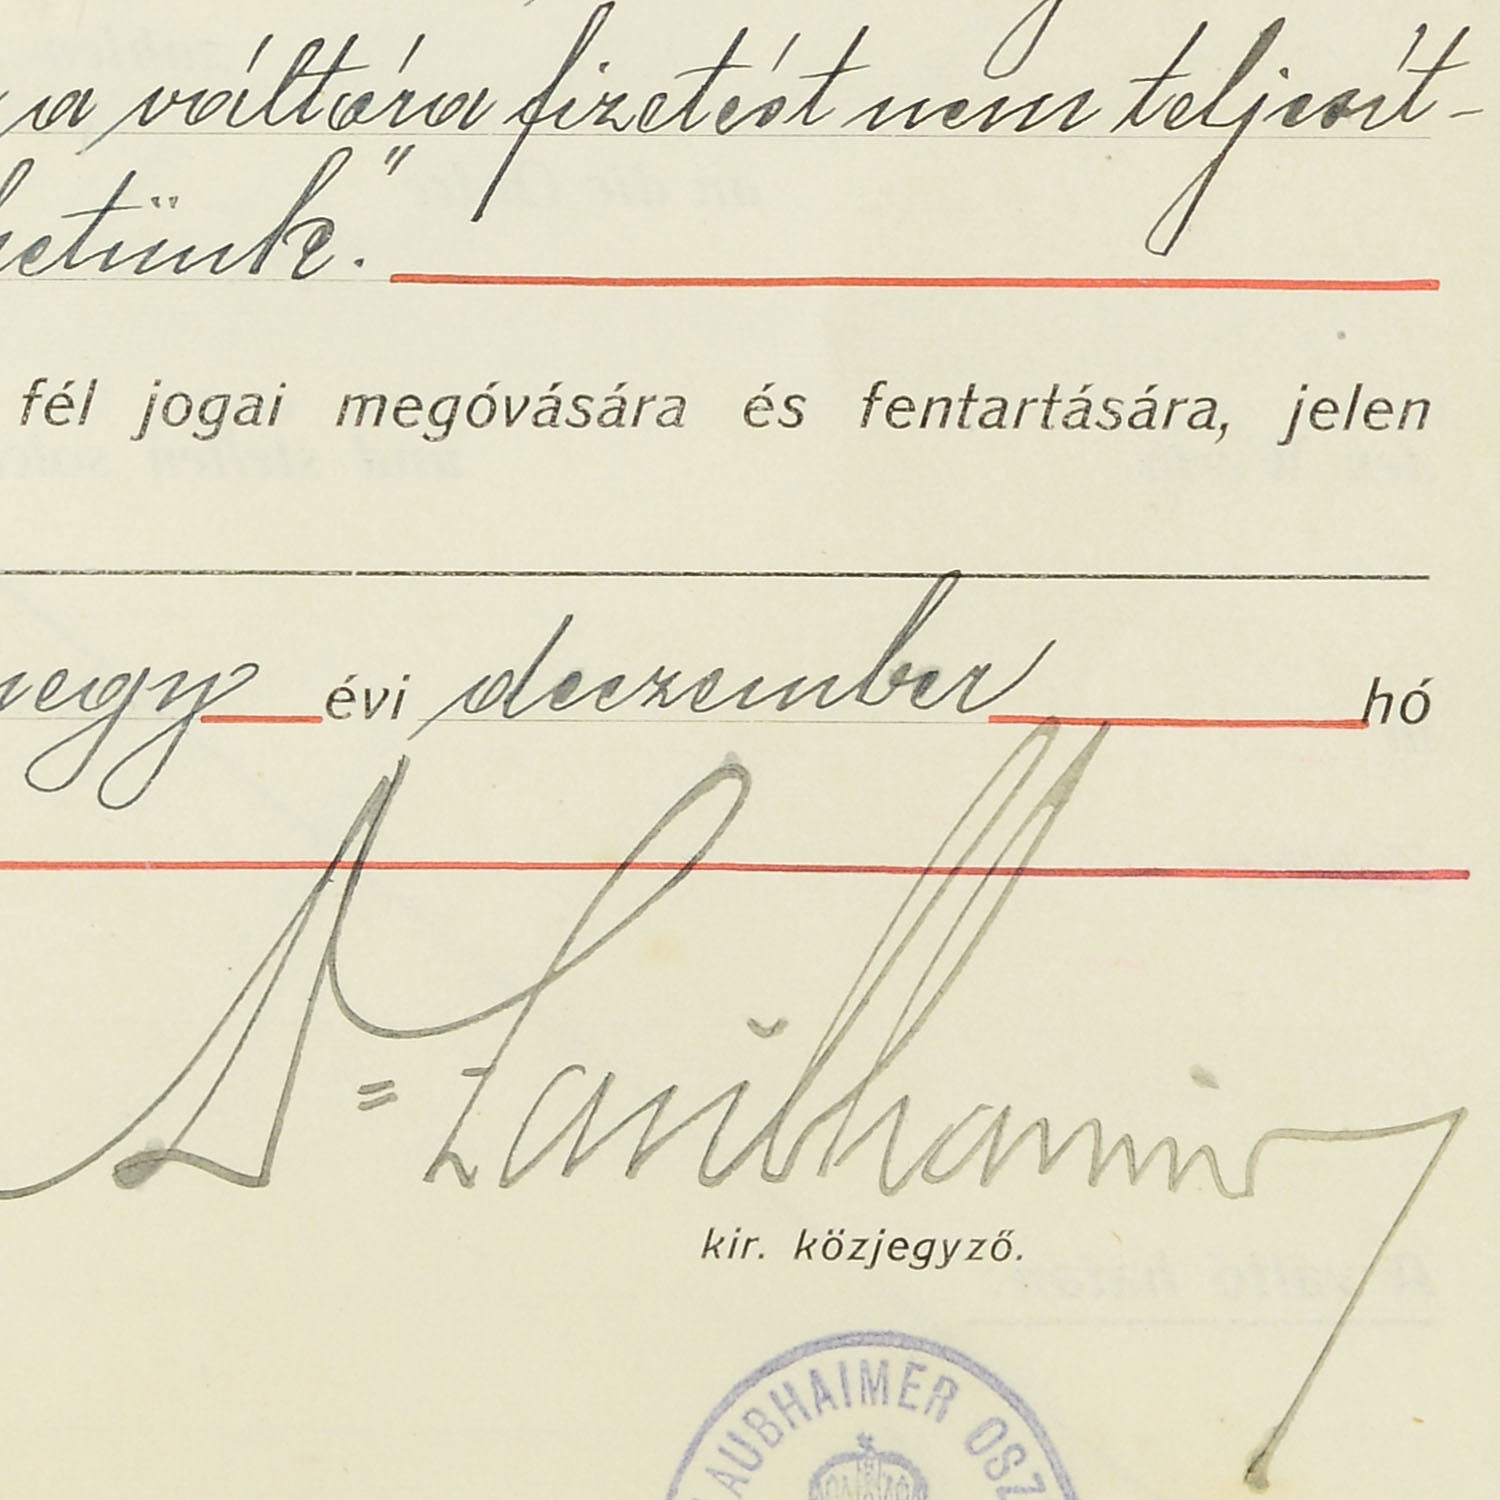 a váltóra fizetést nem teljesít-
hetünk."
fél jogai megóvására és fentartására, jelen
negy évi deczember hó
Dr Laubhaimer
kir. közjegyző.
AUBHAIMER OSZ